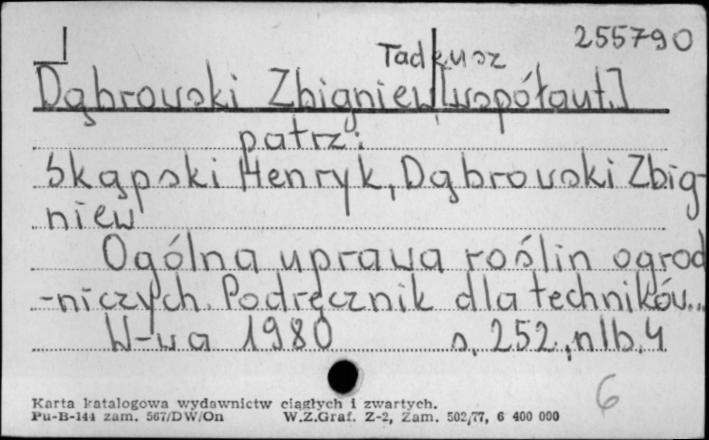 255790
Tadeusz
Dąbrowski Zbigniew [współaut.]
patrz:
Skąpski Henryk, Dąbrowski Zbig-
niew
Ogólna uprawa roślin ogrod
-niczych. Podręcznik dla techników...
W-wa 1980 s. 252, nlb. 4
6
Karta katalogowa wydawnictw ciągłych i zwartych.
Pu-B-144 zam. 567/DW/On W.Z.Graf. Z-2, Zam. 502/77, 6 400 000